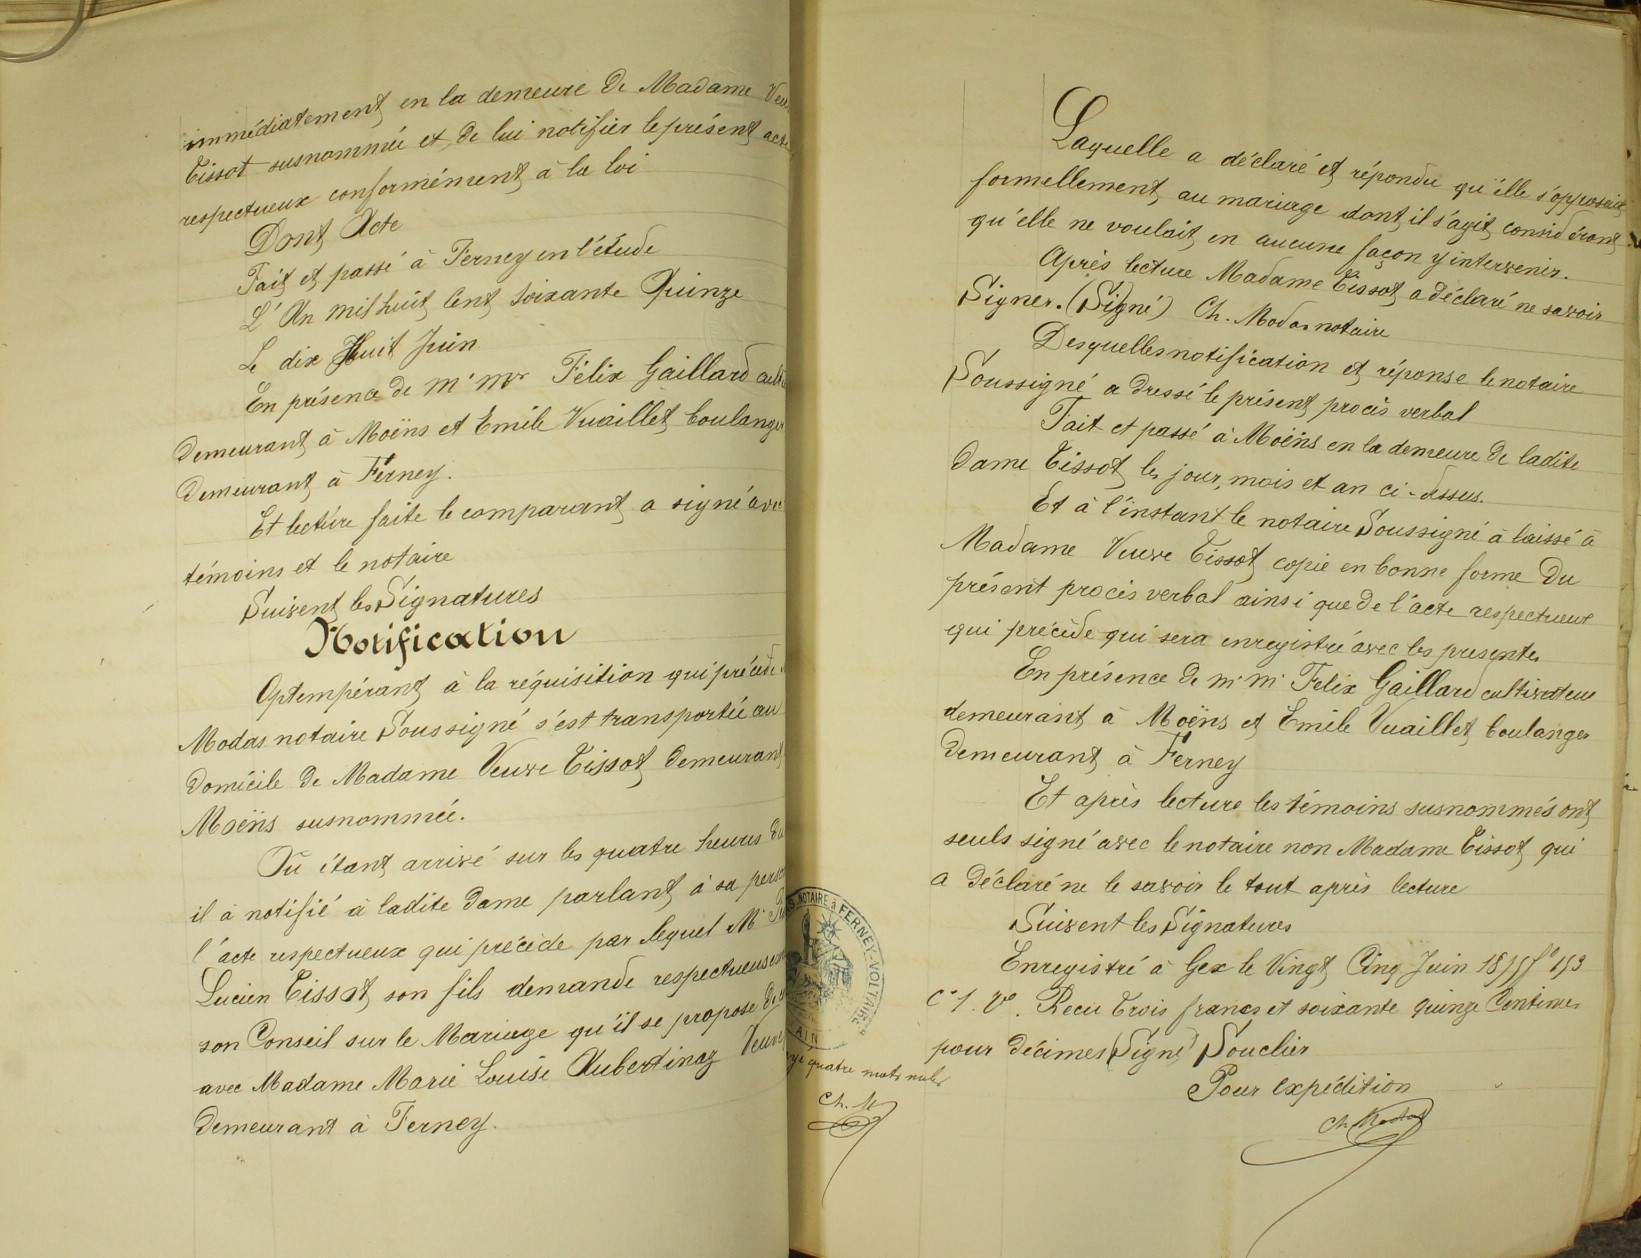 immédiatement en la demeure de Madame
Tissot susnommée et de lui notifier le présent acte
respectueux conformément à la loi
Dont Acte
Fait et passé à Ferney en l'étude
L'An mil huit Cent Soixante Quinze
Le dix Huit Juin
En présence de M. Mrs Félix Gaillard
demeurant à Moëns et Emile Vuaillet boulanger
demeurant à Ferney.
Et lecture faite le comparant a signé avec
témoins et le notaire
Suivent les Signatures
Notification
Optempérant à la réquisition qui précède
Modas notaire Soussigné s'est transporté au
domicile de Madame Veuve Tissot demeurant
Moëns susnommée.
Où étant arrivé sur les quatre heures du
il a notifié à ladite dame parlant à sa
l'acte respectueux qui précède par lequel Mr
Lucien Tissot son fils demande
son Conseil sur le Mariage qu'il se propose de
avec Madame Marie Louise Aubertinaz Veuve
demeurant à Ferney.
NOTAIRE à FERNEY-VOLTAIRE
AIN
quatre mots nuls
Ch. M
Laquelle a déclaré et répondu qu'elle s'opposait
formellement au mariage dont il s'agit considérant
qu'elle ne voulait en aucune façon y intervenir.
Après lecture Madame Tissot a déclaré ne savoir
Signer. (Signé) Ch. Modas notaire
Desquelles notification et réponse le notaire
Soussigné a dressé le présent procès verbal
Fait et passé à Moëns en la demeure de ladite
dame Tissot les jour, mois et an ci-dessus.
Et à l'instant le notaire Soussigné à laissé à
Madame Veuve Tissot copie en bonne forme du
présent procès verbal ainsi que de l'acte respectueux
qui précède qui sera enregistré avec les presentes
En présence de M. M. Felix Gaillard cultivateur
demeurant à Moëns et Emile Vuaillet boulanger
demeurant à Ferney
Et après lecture les témoins susnommés ont
seuls signé avec le notaire non Madame Tissot qui
a déclaré ne le savoir le tout après lecture
Suivent les Signatures
Enregistré à Gex le Vingt Cinq Juin 1875 fo 153
Co 1. Vo. Recu Trois francs et soixante quinze Centimes
pour décimes (Signé) Souclier
Pour expédition
Ch Modas